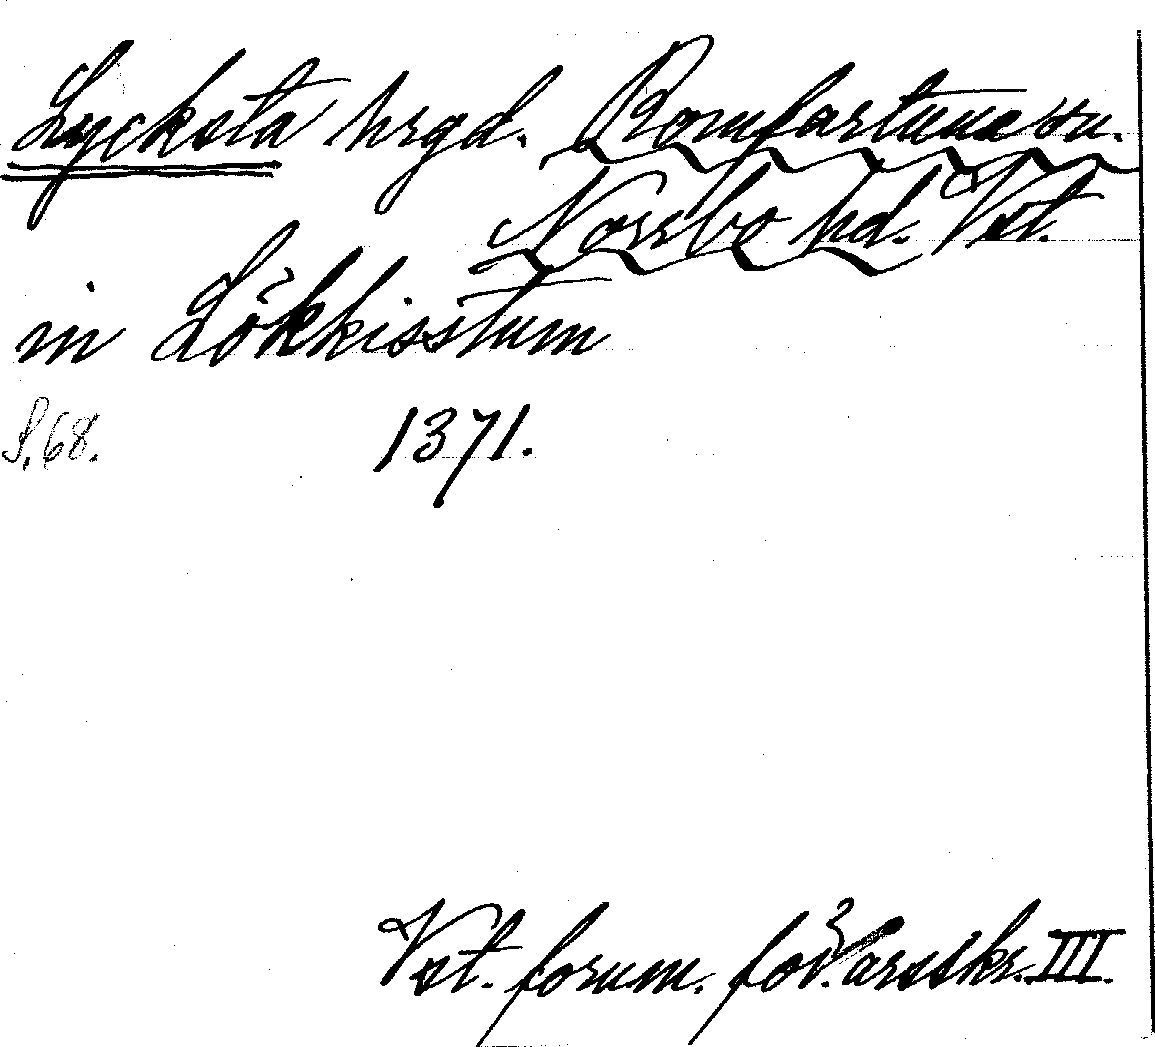 Lycksta hrgd. Romfartuna sn.
Norrbo hd. Vstl.
in Lökkisstum
S. 68. 1371.
Vst. fornm. för. årsskr. III.